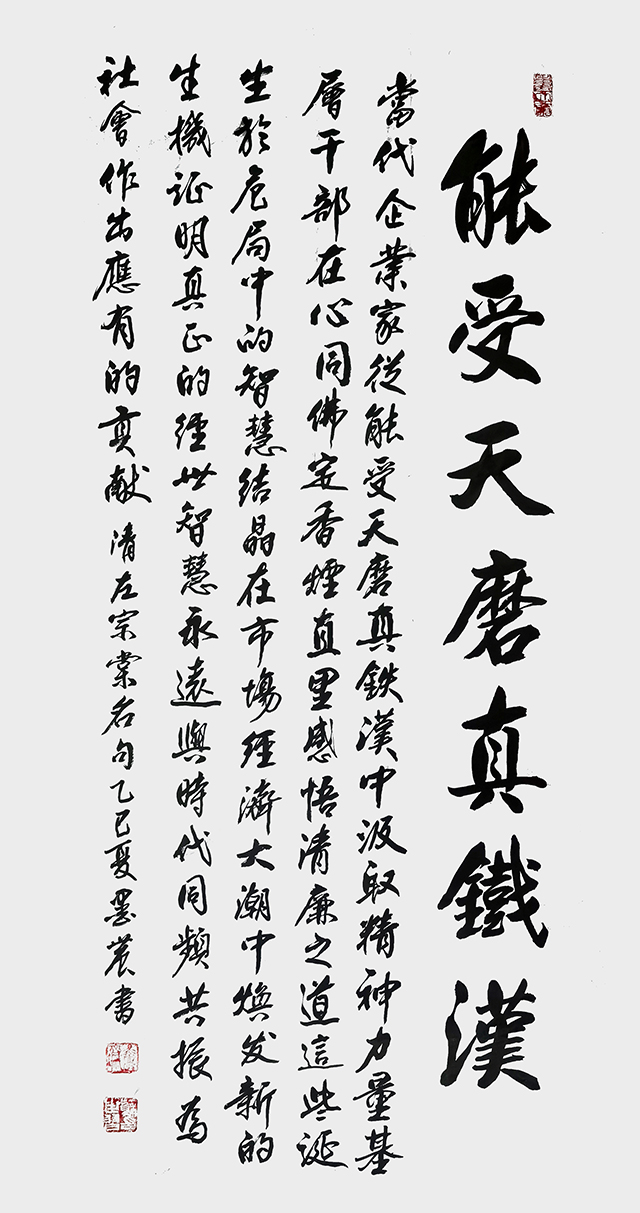 能受天磨真鐵漢
當代企業家從能受天磨真鉄漢中汲取精神力量基
層干部在心同佛定香煙直里感悟清廉之道這些誕
生於危局中的智慧结晶在市場經濟大潮中煥发新的
生機证明真正的經世智慧永遠與時代同頻共振為
社會作出應有的貢献 清左宗棠名句乙巳夏墨農书